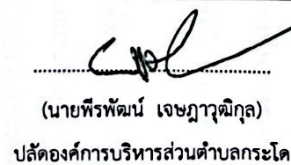 (นายพีรพัฒน์ เจษฎาวุฒิกุล)
ปลัดองค์การบริหารส่วนตำบลกระโด